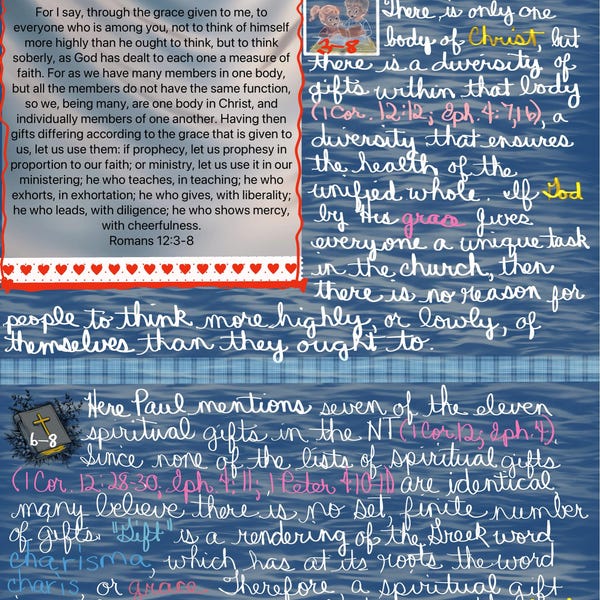 For I say, through the grace given to me, to
everyone who is among you, not to think of himself
more highly than he ought to think, but to think
soberly, as God has dealt to each one a measure of
faith. For as we have many members in one body,
but all the members do not have the same function,
so we, being many, are one body in Christ, and
individually members of one another. Having then
gifts differing according to the grace that is given to
us, let us use them: if prophecy, let us prophesy in
proportion to our faith; or ministry, let us use it in our
ministering; he who teaches, in teaching; he who
exhorts, in exhortation; he who gives, with liberality;
he who leads, with diligence; he who shows mercy,
with cheerfulness.
Romans 12:3-8
3-8
There is only one
body of Christ, but
there is a diversity of
gifts within that body
(1 Cor. 12:12; Eph. 4:7,16), a
diversity that ensures
the health of the
unified whole. If God
by His grace gives
everyone a unique task
in the church, then
there is no reason for
people to think more highly, or lowly, of
themselves than they ought to.
6-8
Here Paul mentions seven of the eleven
spiritual gifts in the NT (1 Cor. 12; Eph. 4).
Since none of the lists of spiritual gifts
(1 Cor. 12:28-30, Eph. 4:11; 1 Peter 4:10-11) are identical,
many believe there is no set, finite number
of gifts. "Gift" is a rendering of the Greek word
charisma, which has at its roots the word
charis, or grace. Therefore, a spiritual gift